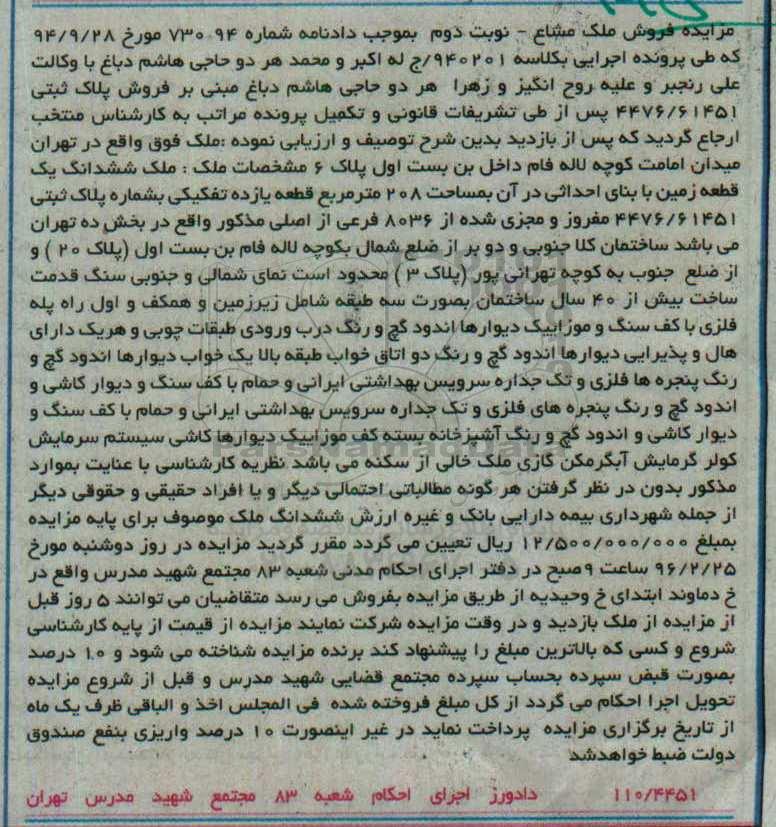 مزایده فروش ملک مشاع - نوبت دوم بموجب دادنامه شماره ۹۴ ۷۳۰ مورخ ۹۴/۹/۲۸
که طی پرونده اجرایی بکلاسه ۹۴۰۲۰۱/ج له اکبر و محمد هر دو حاجی هاشم دباغ با وکالت
علی رنجبر و علیه روح انگیز و زهرا هر دو حاجی هاشم دباغ مبنی بر فروش پلاک ثبتی
۴۴۷۶/۶۱۴۵۱ پس از طی تشریفات قانونی و تکمیل پرونده مراتب به کارشناس منتخب
ارجاع گردید که پس از بازدید بدین شرح توصیف و ارزیابی نموده :ملک فوق واقع در تهران
میدان امامت کوچه لاله فام داخل بن بست اول پلاک ۶ مشخصات ملک : ملک ششدانگ یک
قطعه زمین با بنای احداثی در آن بمساحت ۲۰۸ مترمربع قطعه یازده تفکیکی بشماره پلاک ثبتی
۴۴۷۶/۶۱۴۵۱ مفروز و مجزی شده از ۸۰۳۶ فرعی از اصلی مذکور واقع در بخش ده تهران
می باشد ساختمان کلا جنوبی و دو بر از ضلع شمال بکوچه لاله فام بن بست اول (پلاک ۲۰ ) و
از ضلع جنوب به کوچه تهرانی پور (پلاک ۳ ) محدود است نمای شمالی و جنوبی سنگ قدمت
ساخت بیش از ۴۰ سال ساختمان بصورت سه طبقه شامل زیرزمین و همکف و اول راه پله
فلزی با کف سنگ و موزاییک دیوارها اندود گچ و رنگ درب ورودی طبقات چوبی و هریک دارای
هال و پذیرایی دیوارها اندود گچ و رنگ دو اتاق خواب طبقه بالا یک خواب دیوارها اندود گچ و
رنگ پنجره ها فلزی و تک جداره سرویس بهداشتی ایرانی و حمام با کف سنگ و دیوار کاشی و
اندود گچ و رنگ پنجره های فلزی و تک جداره سرویس بهداشتی ایرانی و حمام با کف سنگ و
دیوار کاشی و اندود گچ و رنگ آشپزخانه بسته کف موزاییک دیوارها کاشی سیستم سرمایش
کولر گرمایش آبگرمکن گازی ملک خالی از سکنه می باشد نظریه کارشناسی با عنایت بموارد
مذکور بدون در نظر گرفتن هر گونه مطالباتی احتمالی دیگر و یا افراد حقیقی و حقوقی دیگر
از جمله شهرداری بیمه دارایی بانک و غیره ارزش ششدانگ ملک موصوف برای پایه مزایده
بمبلغ ۱۲/۵۰۰/۰۰۰/۰۰۰ ریال تعیین می گردد مقرر گردید مزایده در روز دوشنبه مورخ
۹۶/۲/۲۵ ساعت ۹صبح در دفتر اجرای احکام مدنی شعبه ۸۳ مجتمع شهید مدرس واقع در
خ دماوند ابتدای خ وحیدیه از طریق مزایده بفروش می رسد متقاضیان می توانند ۵ روز قبل
از مزایده از ملک بازدید و در وقت مزایده شرکت نمایند مزایده از قیمت از پایه کارشناسی
شروع و کسی که بالاترین مبلغ را پیشنهاد کند برنده مزایده شناخته می شود و ۱۰ درصد
بصورت قبض سپرده بحساب سپرده مجتمع قضایی شهید مدرس و قبل از شروع مزایده
تحویل اجرا احکام می گردد از کل مبلغ فروخته شده فی المجلس اخذ و الباقی ظرف یک ماه
از تاریخ برگزاری مزایده پرداخت نماید در غیر اینصورت ۱۰ درصد واریزی بنفع صندوق
دولت ضبط خواهدشد
۱۱۰/۴۴۵۱ دادورز اجرای احکام شعبه ۸۳ مجتمع شهید مدرس تهران